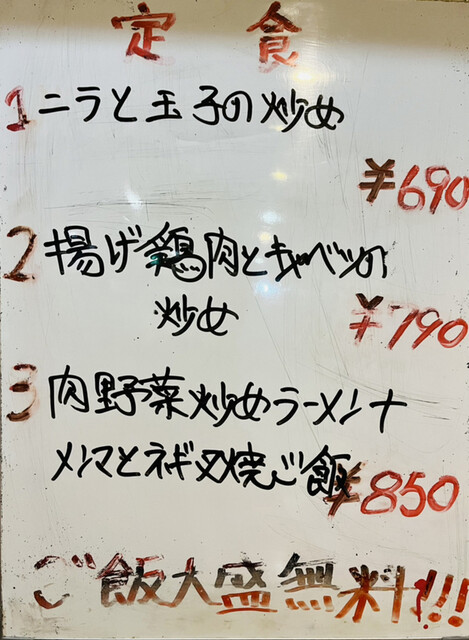 定食
1 ニラと玉子の炒め
¥690
2 揚げ鶏肉とキャベツの
炒め ¥790
3 肉野菜炒めラーメン+
メンマとネギ叉焼ご飯 ¥850
ご飯大盛無料!!!